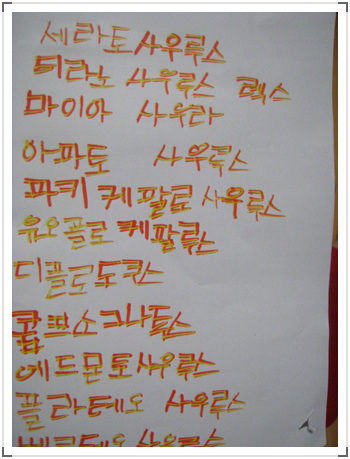 세라토사우루스
티라노 사우루스 렉스
마이아 사우라
아파토 사우루스
파키케팔로사우루스
유오플로케팔루스
디플로도쿠스
콤프소그나투스
에드몬토사우루스
플라테오 사우루스